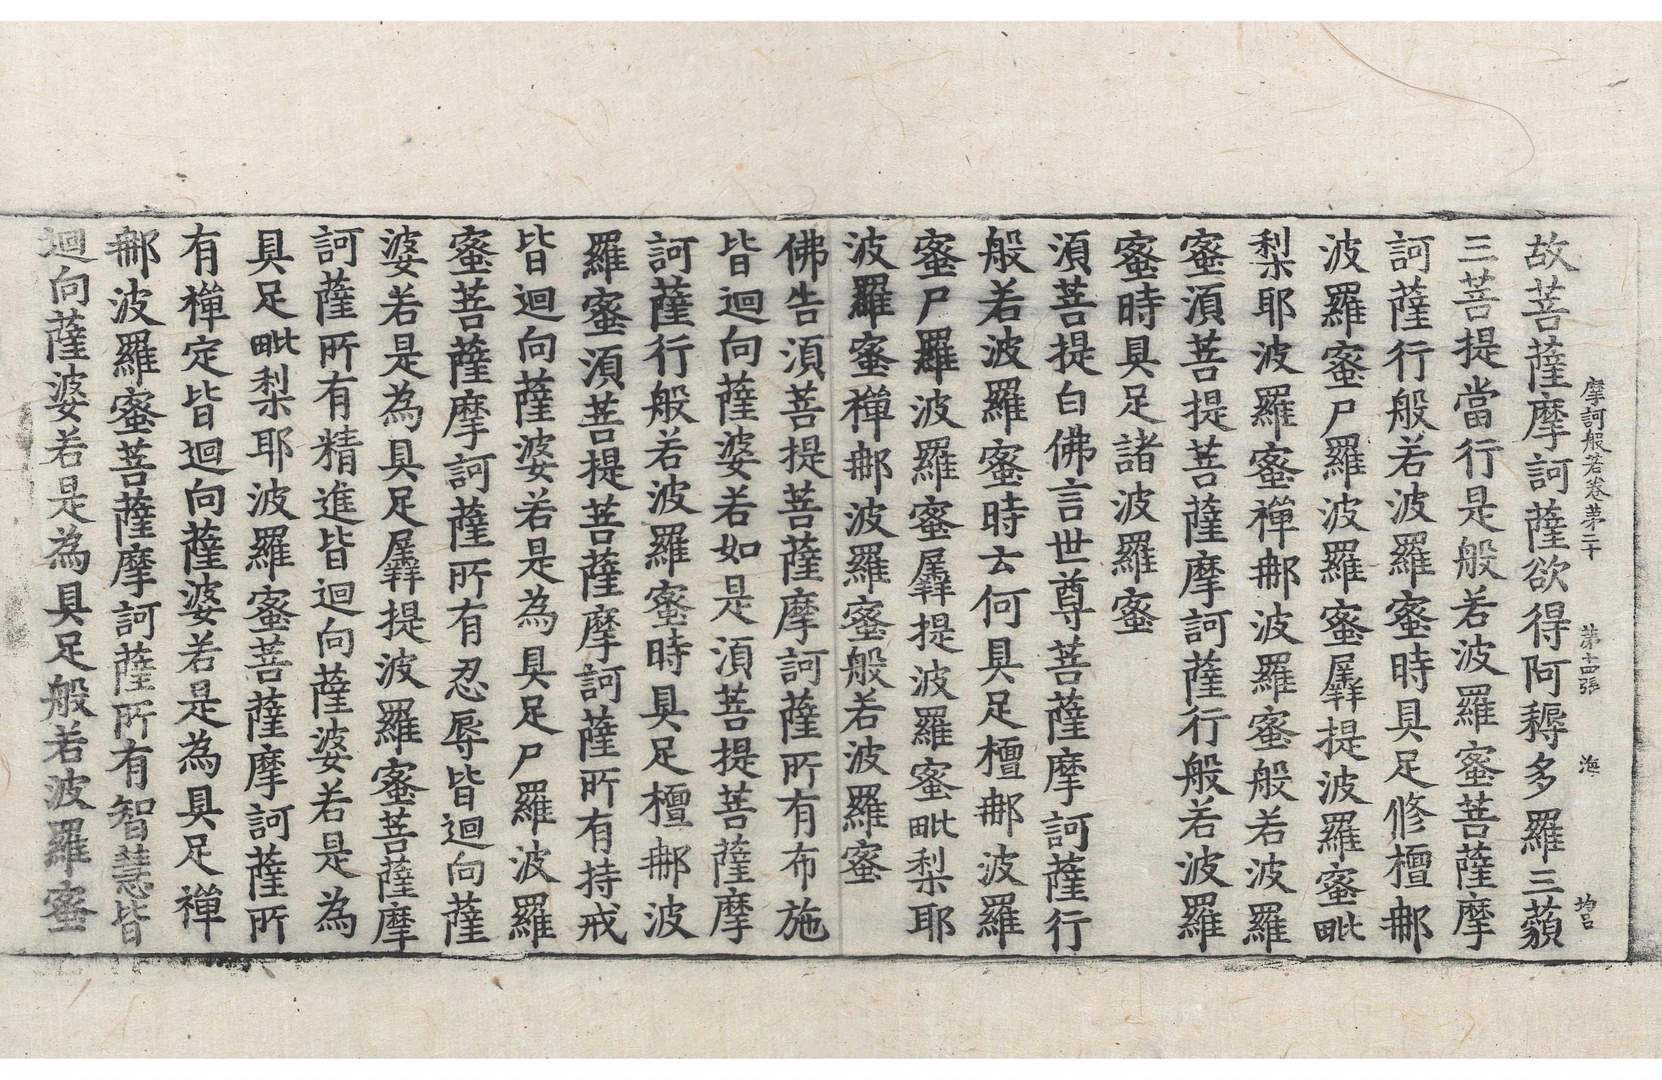 摩訶般若卷第二十 第十四張 海 均呂
故菩薩摩訶薩欲得阿耨多羅三藐
三菩提當行是般若波羅蜜菩薩摩
訶薩行般若波羅蜜時具足修檀那
波羅蜜尸羅波羅蜜羼提波羅蜜毗
梨耶波羅蜜禪那波羅蜜般若波羅
蜜湏菩提菩薩摩訶薩行般若波羅
蜜時具足諸波羅蜜
湏菩提白佛言世尊菩薩摩訶薩行
般若波羅蜜時云何具足檀那波羅
蜜尸羅波羅蜜羼提波羅蜜毗梨耶
波羅蜜禪那波羅蜜般若波羅蜜
佛告湏菩提菩薩摩訶薩所有布施
皆迴向薩婆若如是湏菩提菩薩摩
訶薩行般若波羅蜜時具足檀那波
羅蜜湏菩提菩薩摩訶薩所有持戒
皆迴向薩婆若是為具足尸羅波羅
蜜菩薩摩訶薩所有忍辱皆迴向薩
婆若是為具足羼提波羅蜜菩薩摩
訶薩所有精進皆迴向薩婆若是為
具足毗梨耶波羅蜜菩薩摩訶薩所
有禪定皆迴向薩婆若是為具足禪
那波羅蜜菩薩摩訶薩所有智慧皆
迴向薩婆若是為具足般若波羅蜜